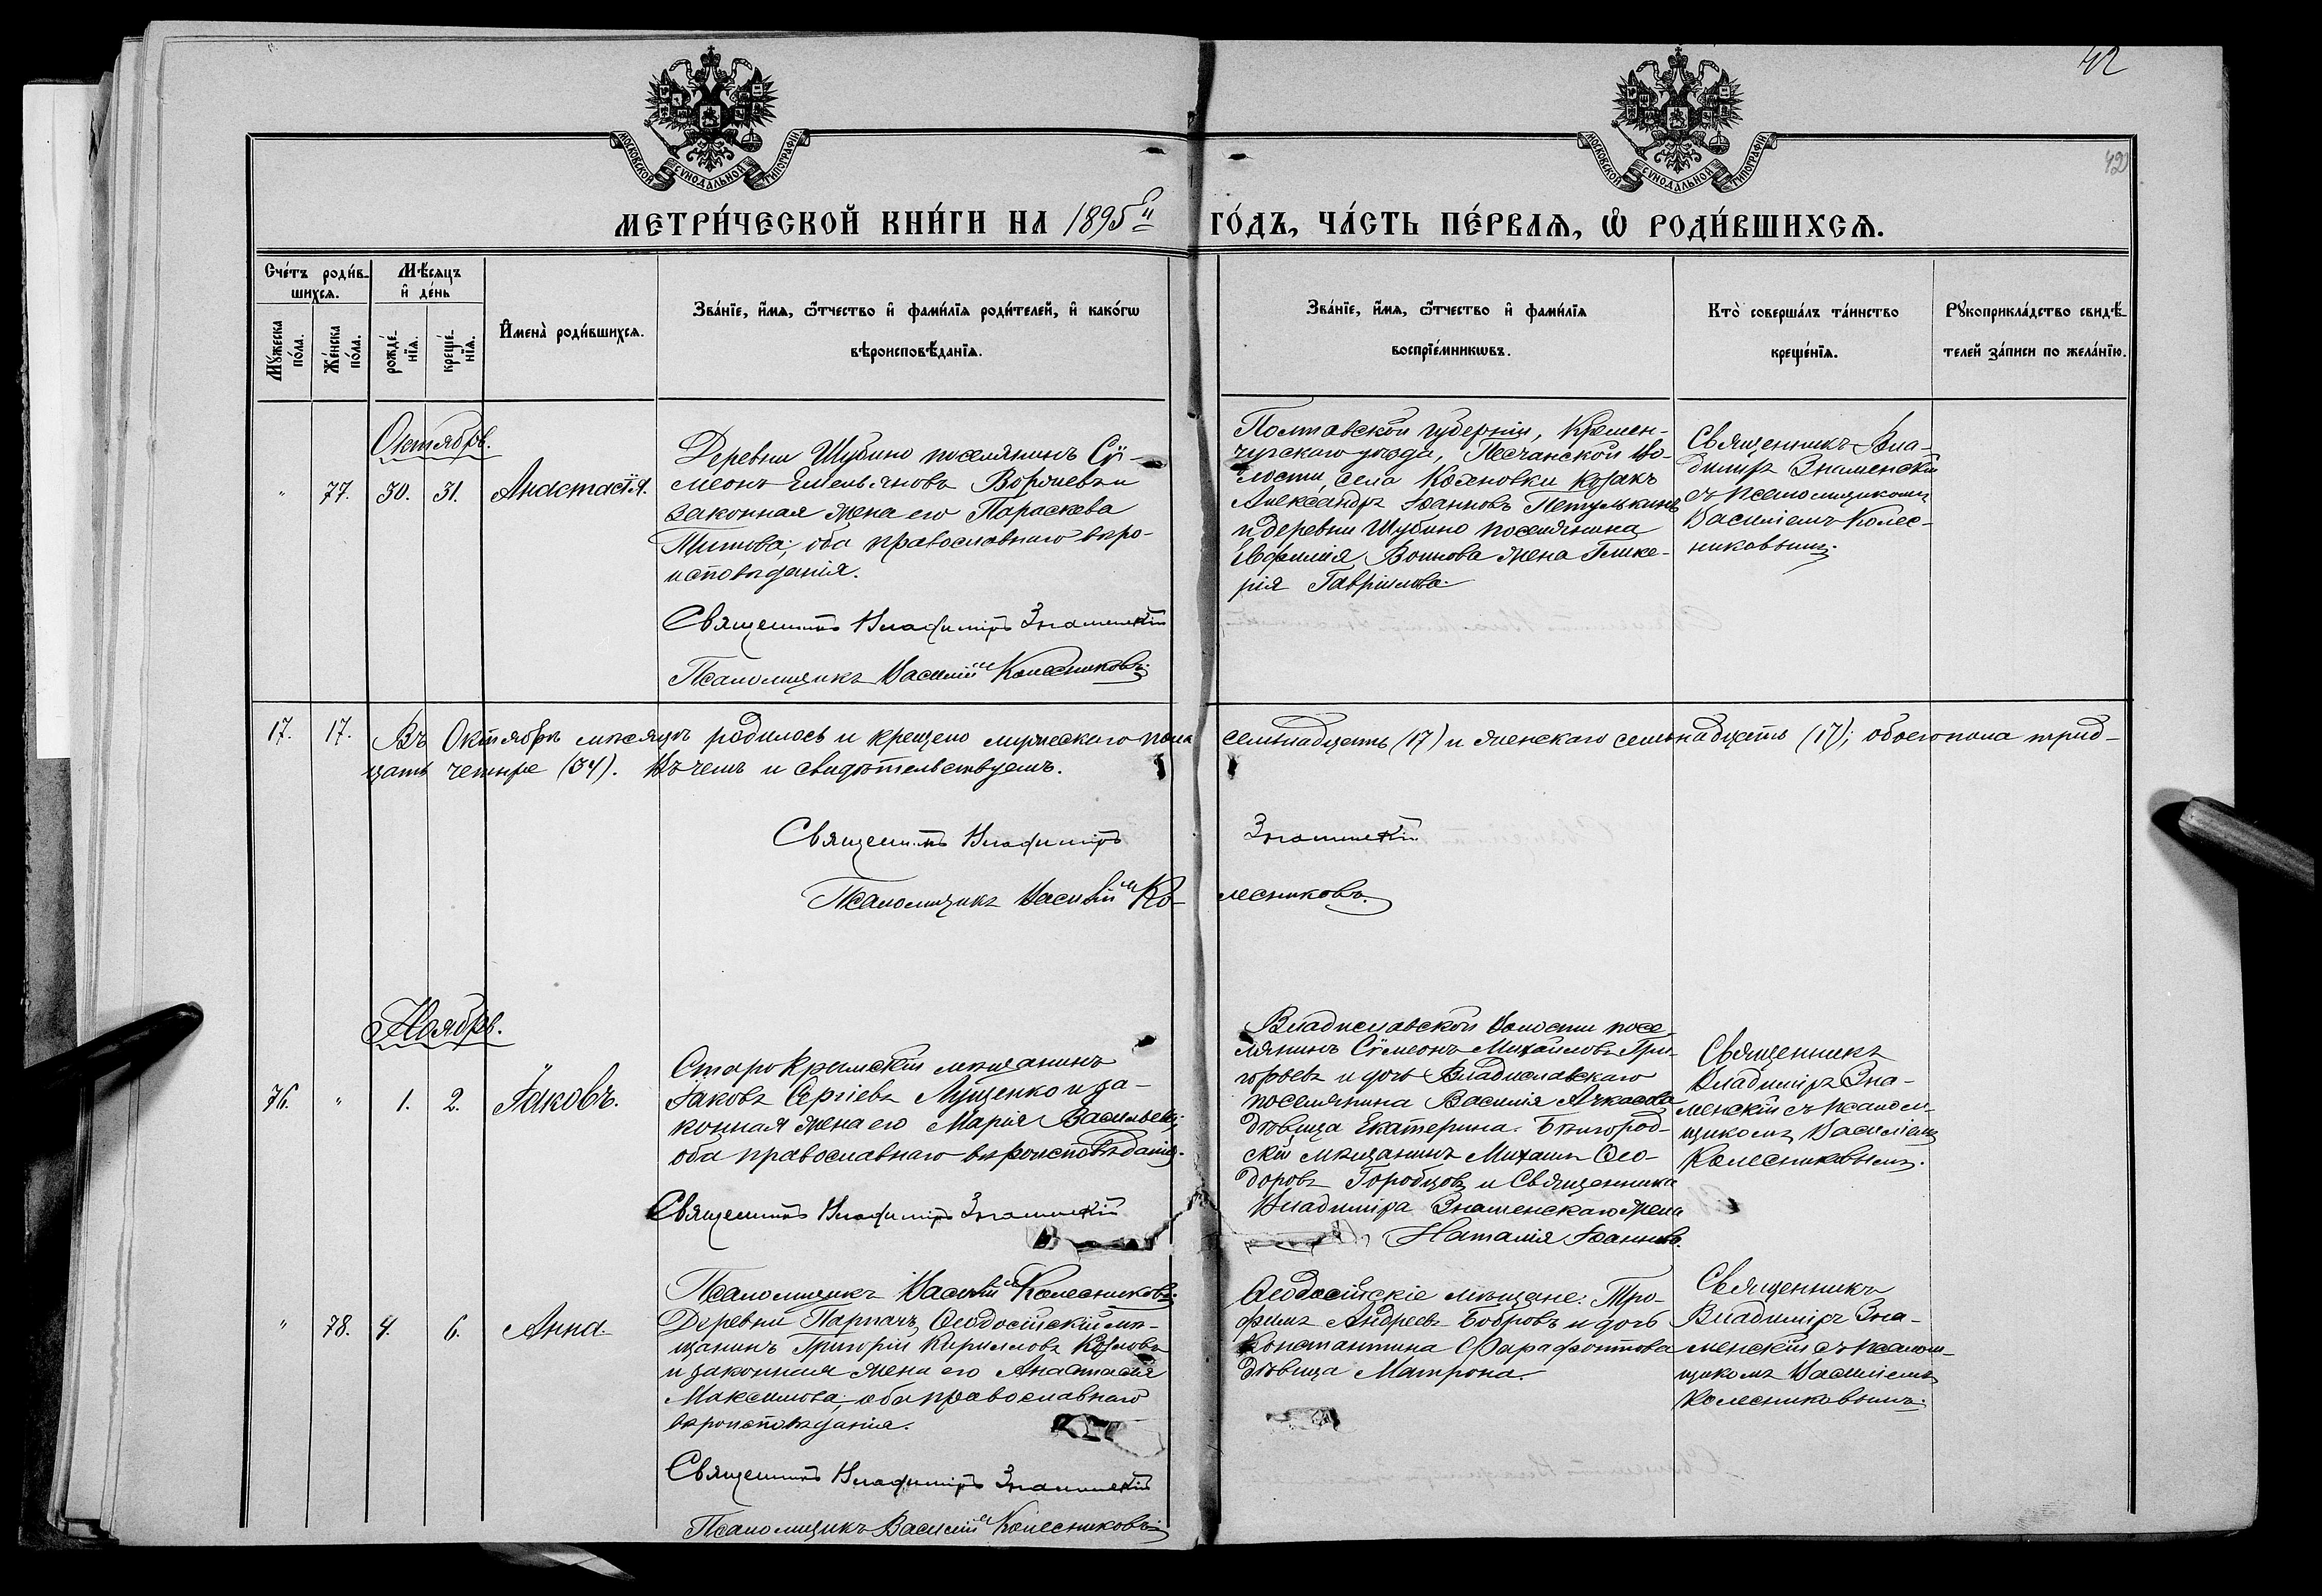 42
420
МОСКОВСКОЙ СѴНОДАЛЬНОЙ ТИПОГРАФІИ
МОСКОВСКОЙ СѴНОДАЛЬНОЙ ТИПОГРАФІИ
МЕТРИ́ЧЕСКОЙ КНИ́ГИ НА 1895й ГО́ДЪ, ЧА́СТЬ ПЕ́РВАѦ, Ѽ РОДИ́ВШИХСѦ.
Сче́тъ роди́вшихсѧ.
Мꙋ́жеска по́ла.
Же́нска по́ла.
Мѣ́сѧцъ и҆ де́нь
рожде́нїѧ.
креще́нїѧ.
И҆мена̀ роди́вшихсѧ.
Зва́нїе, и҆́мѧ, ѻ҆́тчество и҆ фами́лїѧ роди́телей, и҆ како́гѡ
вѣроисповѣ́данїѧ.
Зва́нїе, и҆́мѧ, ѻ҆́тчество и҆ фами́лїѧ
воспрїе́мникѡвъ.
Кто̀ соверша́лъ та́инство
креще́нїѧ.
Рꙋкоприкла́дство свидѣ́-
телей за́писи по жела́нїю.
Октябрь.
" 77. 30. 31. Анастасія.
Деревни Шубино поселянинъ Сѵ-
меонъ Емельяновъ Воронцевъ и
законная жена его Параскева
Титова; оба православнаго вѣро-
исповѣданія.
Священникъ Владиміръ Знаменскій
Псаломщикъ Василій Колесниковъ.
Полтавской губерніи, Кремен-
чугскаго уѣзда, Песчанской во-
лости, села Кохновки козакъ
Александръ Іоанновъ Петулькинъ
и деревни Шубино поселянина
Евфимія Воинова жена Глике-
рія Гавріилова.
Священникъ Вла-
диміръ Знаменскій
съ псаломщикомъ
Василіемъ Колес-
никовымъ.
17. 17. Въ Октябрѣ мѣсяцѣ родилось и крещено мужескаго пола семьнадцать (17) и женскаго семьнадцать (17); обоего пола трид-
цать четыре (34). Въ чемъ и свидѣтельствуемъ.
Священникъ Владиміръ Знаменскій
Псаломщикъ Василій Колесниковъ.
Ноябрь.
76. " 1. 2. Іаковъ.
Старокрымскій мѣщанинъ
Іаковъ Сергіевъ Луценко и за-
конная жена его Марія Васильева;
оба православнаго вѣроисповѣданія.
Священникъ Владиміръ Знаменскій
Псаломщикъ Василій Колесниковъ.
Владиславской волости посе-
лянинъ Сѵмеонъ Михаиловъ Гри-
горьевъ и дочь Владиславскаго
поселянина Василія Ачкасова
дѣвица Екатерина. Бѣлгород-
скій мѣщанинъ Михаилъ Ѳео-
доровъ Горобцовъ и Священника
Владиміра Знаменскаго жена
Наталія Іоаннова.
Священникъ
Владиміръ Зна-
менскій съ псалом-
щикомъ Василіемъ
Колесниковымъ.
" 78. 4. 6. Анна.
Деревни Парпачъ, Ѳеодосійскій мѣ-
щанинъ Григорій Кирилловъ Козловъ
и законная жена его Анастасія
Максимова; оба православнаго
вѣроисповѣданія.
Священникъ Владиміръ Знаменскій
Псаломщикъ Василій Колесниковъ.
Ѳеодосійскіе мѣщане: Тро-
фимъ Андреевъ Бобровъ и дочь
Константина Фарафонтова
дѣвица Матрона.
Священникъ
Владиміръ Зна-
менскій съ псалом-
щикомъ Василіемъ
Колесниковымъ.